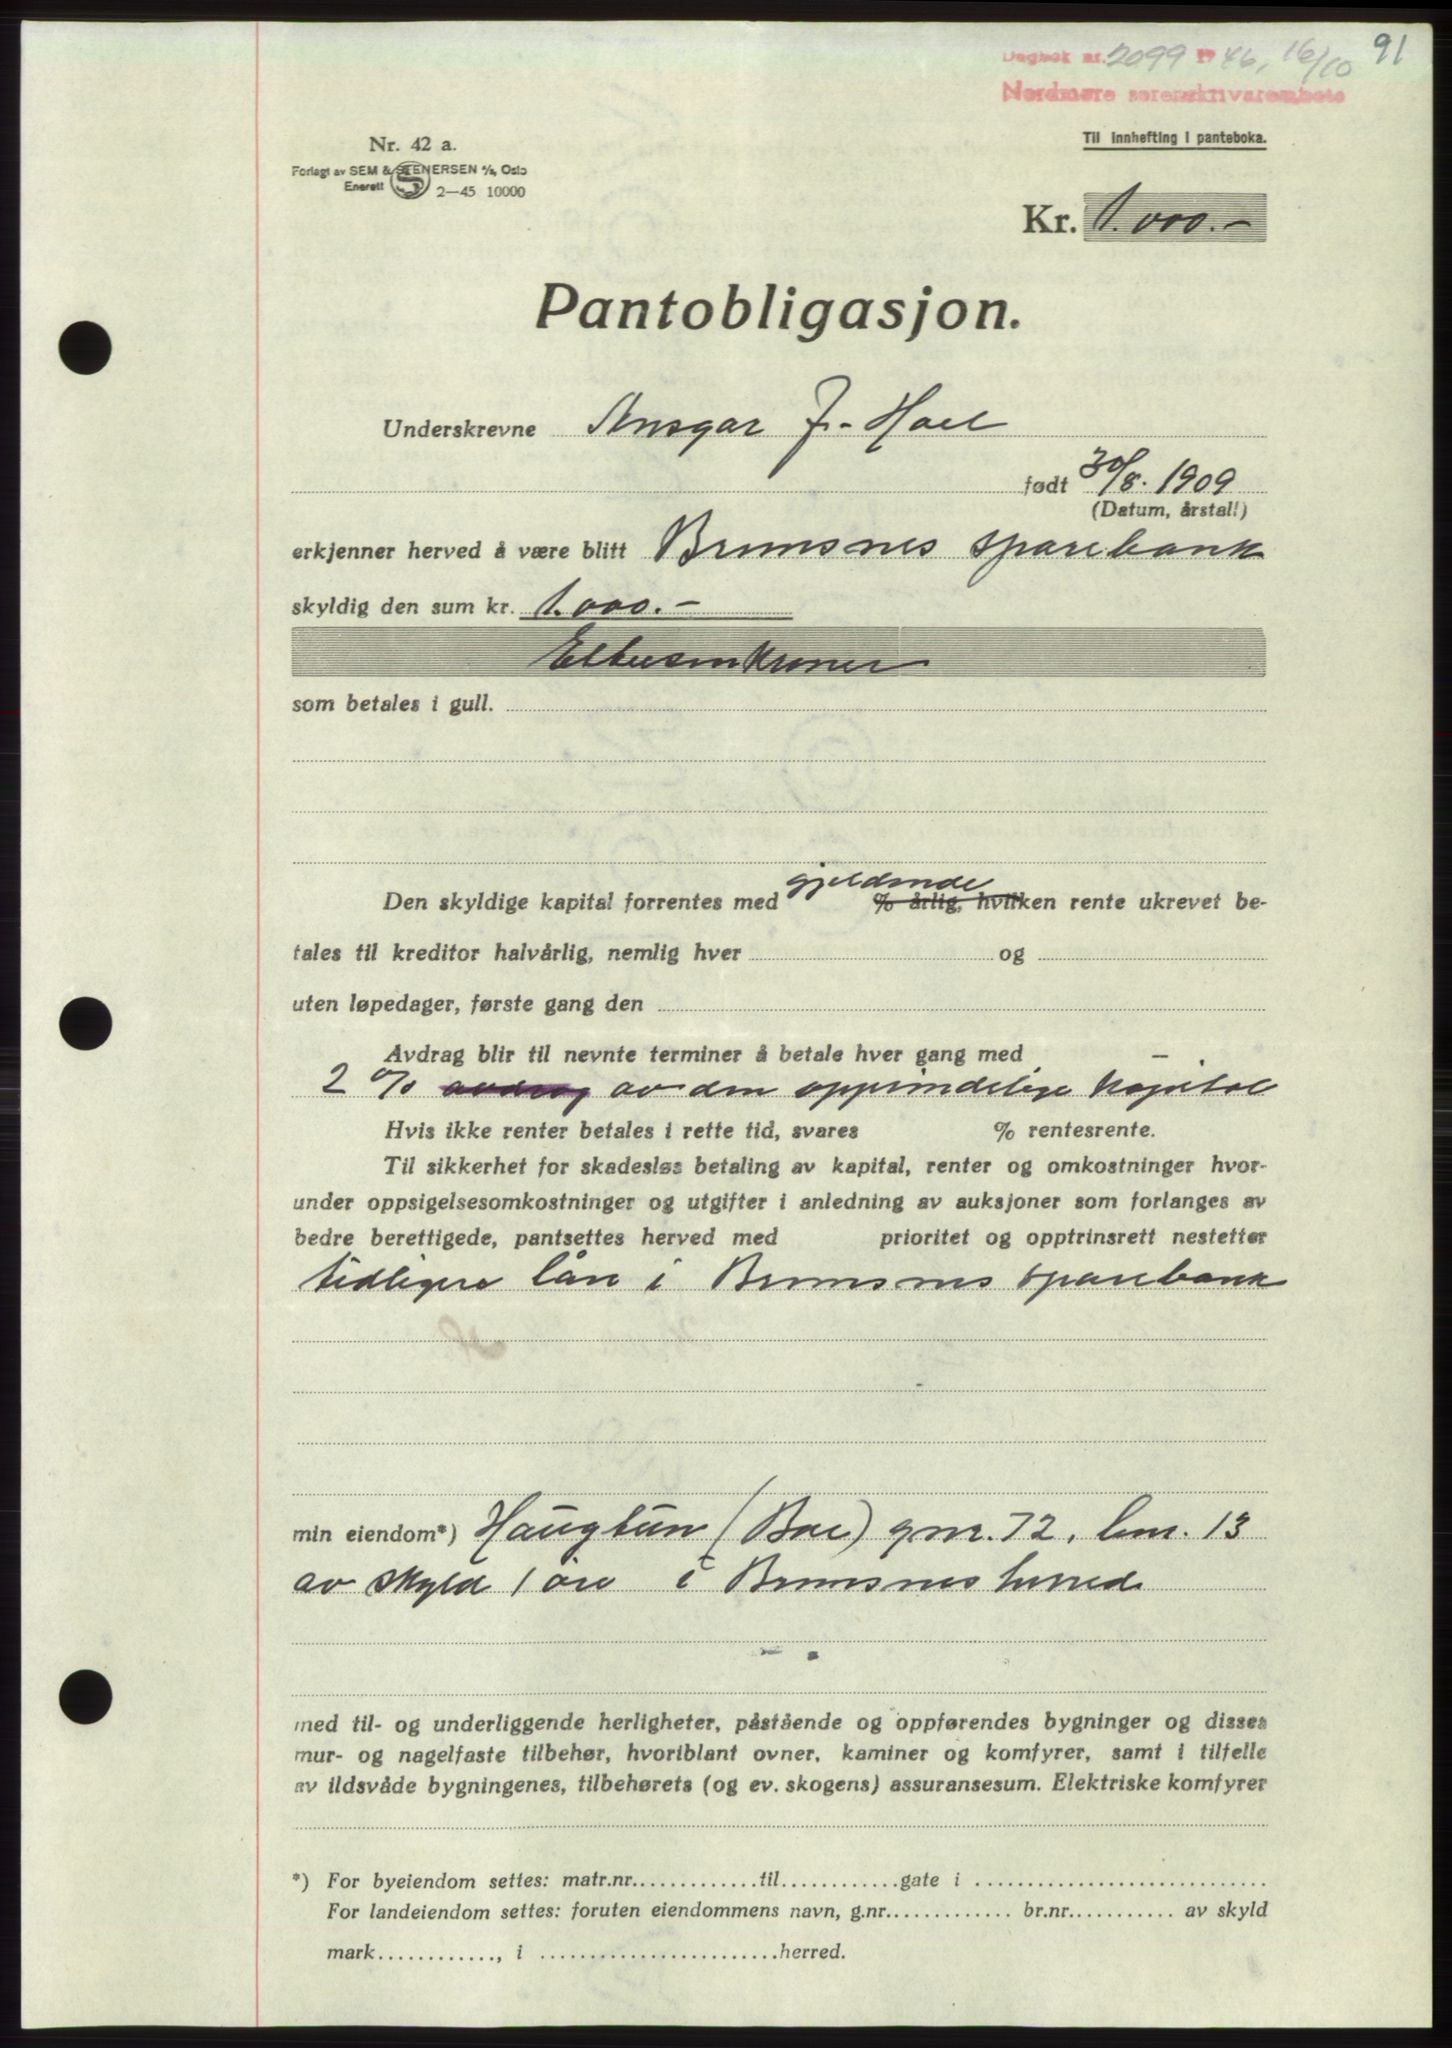 Dagbok nr. 2099 19 46, 16/10 91
Nordmøre sorenskriverembete
Til innhefting i panteboka.
Nr. 42 a.
Forlagt av SEM & STENERSEN A/S, Oslo
Enerett 2—45 10000
Kr. 1.000.-
Pantobligasjon.
Underskrevne Ansgar J. Hoel
født 30/8. 1909
(Datum, årstall)
erkjenner herved å være blitt Bremsnes sparebank
skyldig den sum kr. 1.000.-
Ettusen kroner
som betales i gull.
gjeldende
Den skyldige kapital forrentes med % årlig, hvilken rente ukrevet be-
tales til kreditor halvårlig, nemlig hver og
uten løpedager, første gang den
Avdrag blir til nevnte terminer å betale hver gang med —
2 % avdrag av den opprindelige kapital
Hvis ikke renter betales i rette tid, svares % rentesrente.
Til sikkerhet for skadesløs betaling av kapital, renter og omkostninger hvor-
under oppsigelsesomkostninger og utgifter i anledning av auksjoner som forlanges av
bedre berettigede, pantsettes herved med prioritet og opptrinsrett nestetter
tidligere lån i Bremsnes sparebank
min eiendom*) Haugtun (Boe) gnr. 72, bnr. 13
av skyld 1 øre i Bremsnes herred
med til- og underliggende herligheter, påstående og oppførendes bygninger og disses
mur- og nagelfaste tilbehør, hvoriblant ovner, kaminer og komfyrer, samt i tilfelle
av ildsvåde bygningenes, tilbehørets (og ev. skogens) assuransesum. Elektriske komfyrer
*) For byeiendom settes: matr.nr.............til............gate i ............................
For landeiendom settes: foruten eiendommens navn, g.nr............. br.nr........... av skyld
mark............, i ........................herred.